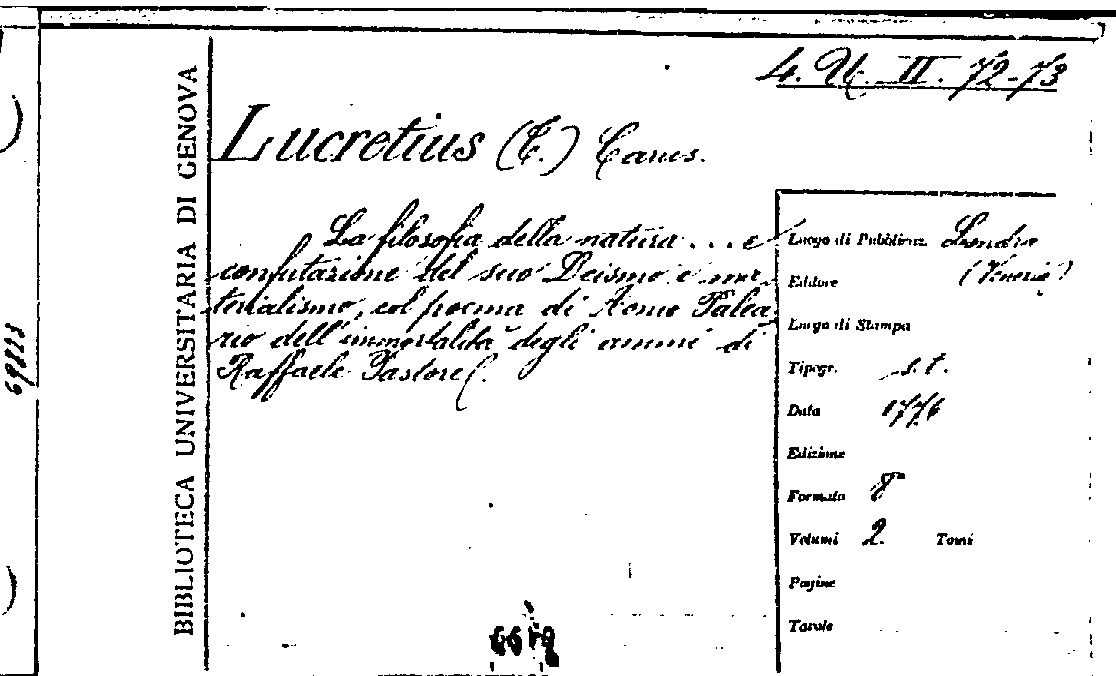 4. U. II. 72-73
BIBLIOTECA UNIVERSITARIA DI GENOVA
Lucretius (T.) Carus.
La filosofia della natura ... e
confutazione del suo Deismo e ma
terialismo, col poema di Aonio Palea
rio dell'immortalità degli animi di
Raffaele Pastore.
Luogo di Pubblicaz. Londra
(Venezia)
Editore
Luogo di Stampa
Tipogr. s.t.
Data 1776
Edizione
Formato 8°
Volumi 2. Tomi
Pagine
Tavole